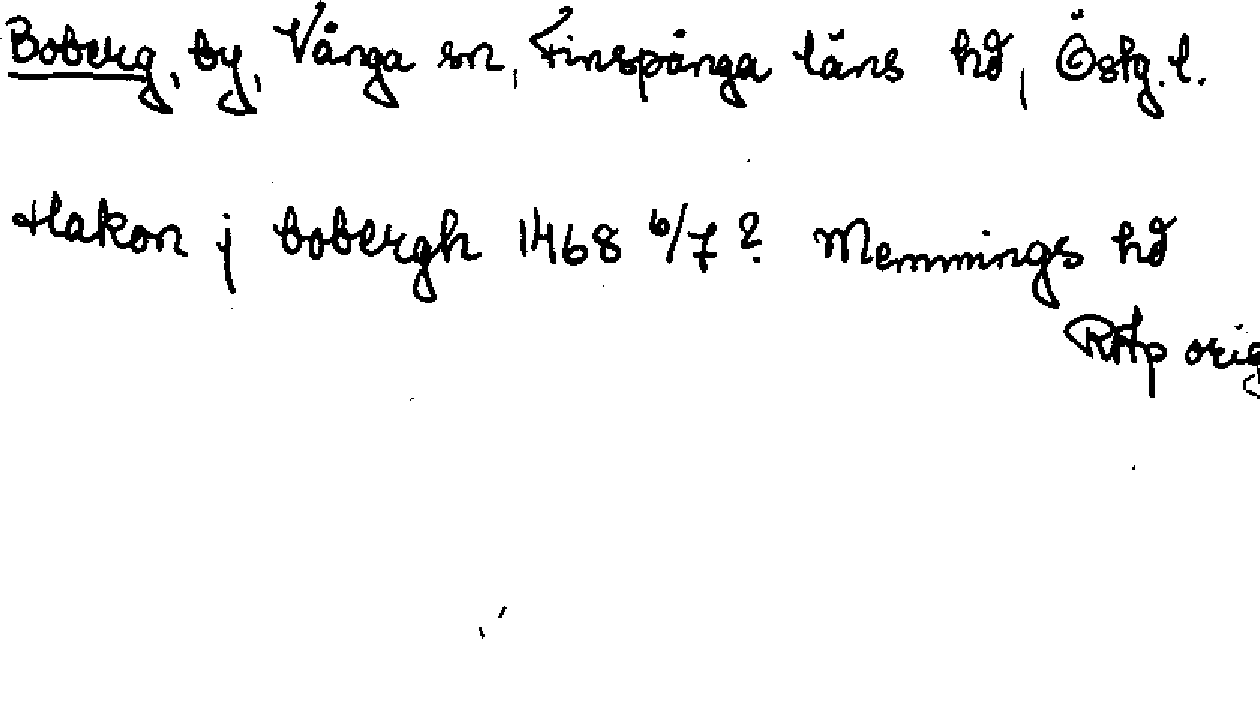 Boberg, by, Vånga sn, Finspånga läns hd, Östg. l.
Hakon j bobergh 1468 6/7? Memmings hd
RAp orig